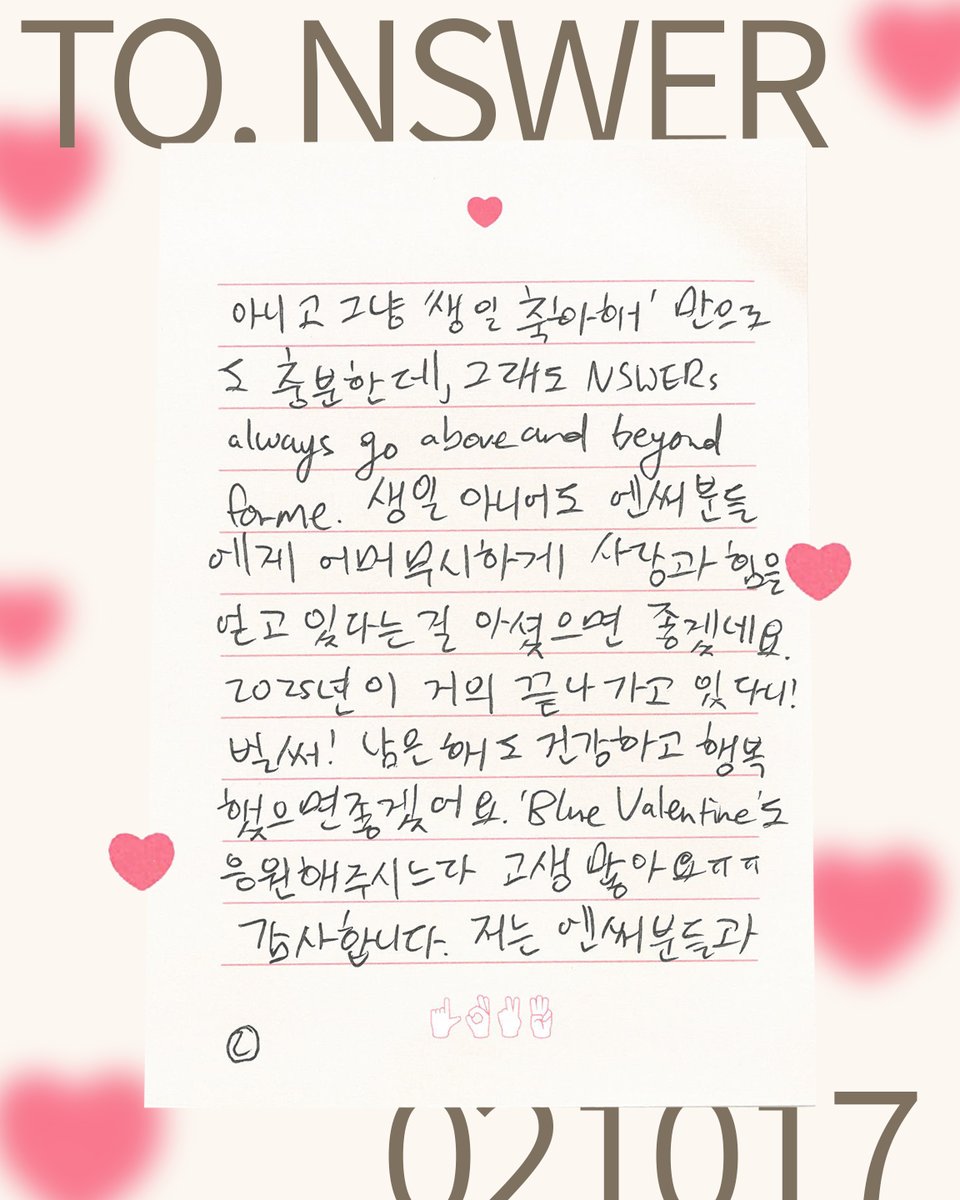 TO. NSWER
아니고 그냥 '생일 축하해' 만으로
도 충분한데, 그래도 NSWERs
always go above and beyond
for me. 생일 아니어도 엔써분들
에게 어머무시하게 사랑과 힘을
얻고 있다는걸 아셨으면 좋겠네요.
2025년이 거의 끝나가고 있다니!
벌써! 남은 해도 건강하고 행복
했으면좋겠어요. 'Blue Valentine'도
응원해주시느라 고생 많아요ㅠㅠ
감사합니다. 저는 엔써분들과
②
021017